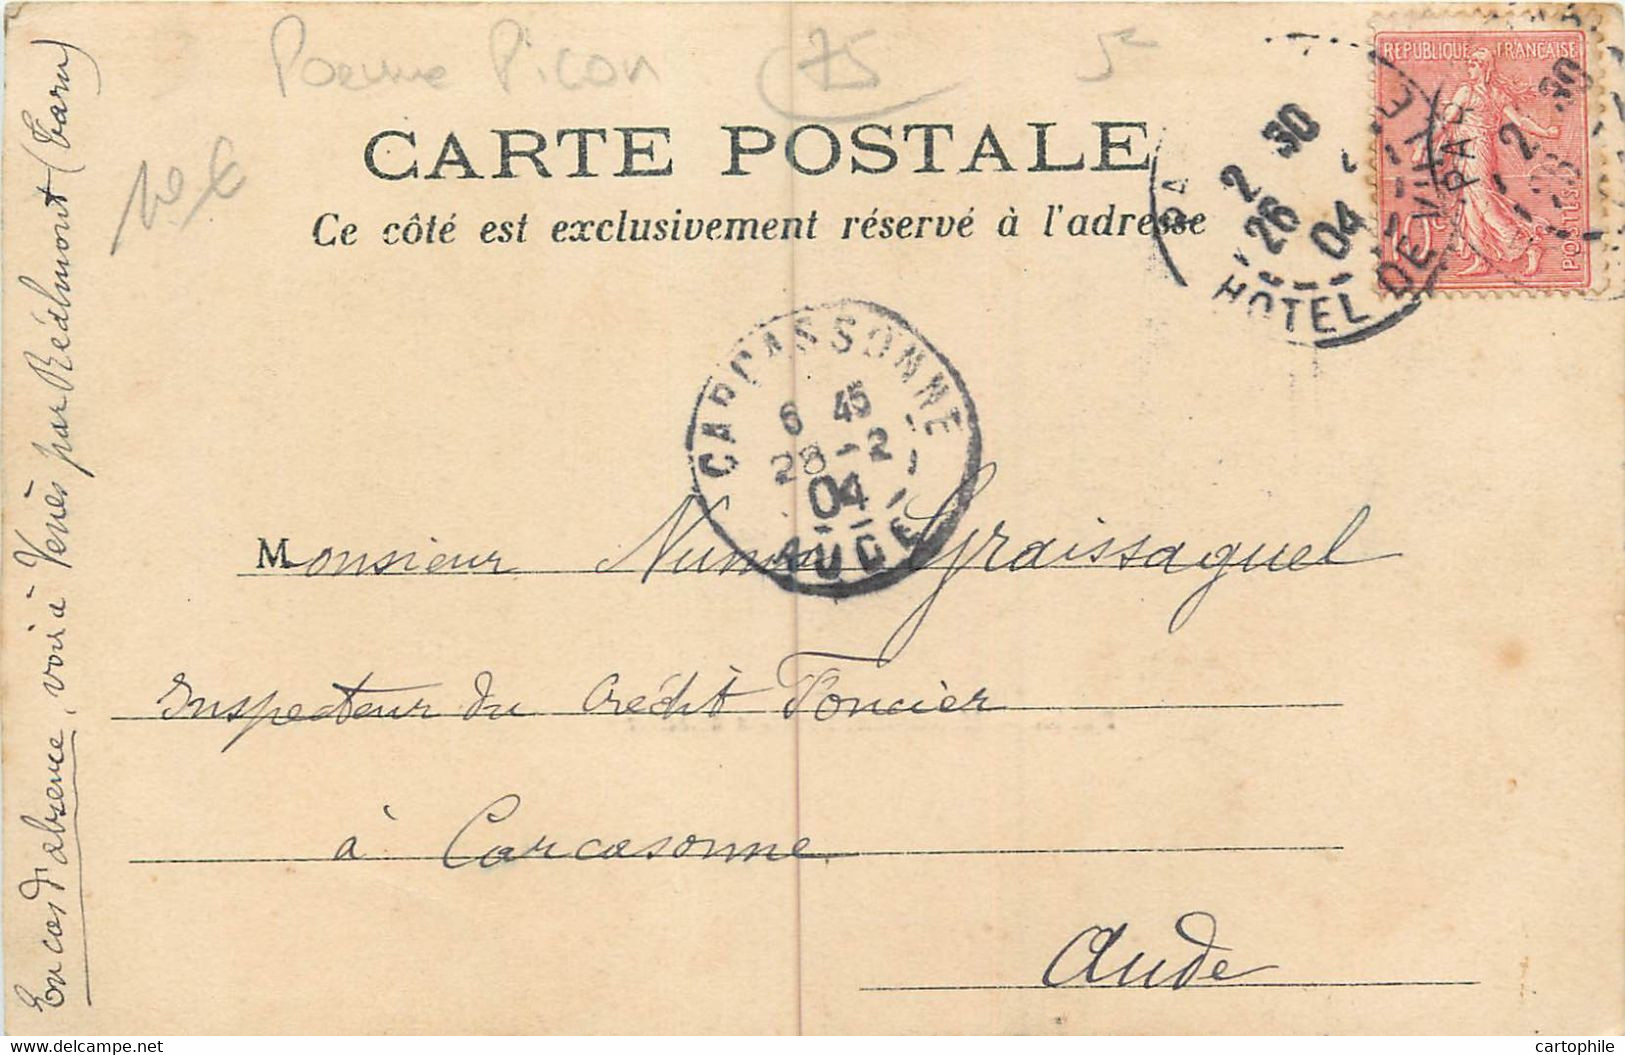 Poeme Picon 75 5
10 €
CARTE POSTALE
Ce côté est exclusivement réservé à l'adresse
REPUBLIQUE FRANÇAISE
10c
POSTES
2 30
26 04
HOTEL DE VILLE
CARCASSONNE
6 45
28-2
04
AUDE
Monsieur Numa Graissaguel
Inspecteur du Crédit Foncier
à Carcassonne
Aude
En cas d'absence, voir à Venès par Réalmont (Tarn)
delcampe.net
cartophile